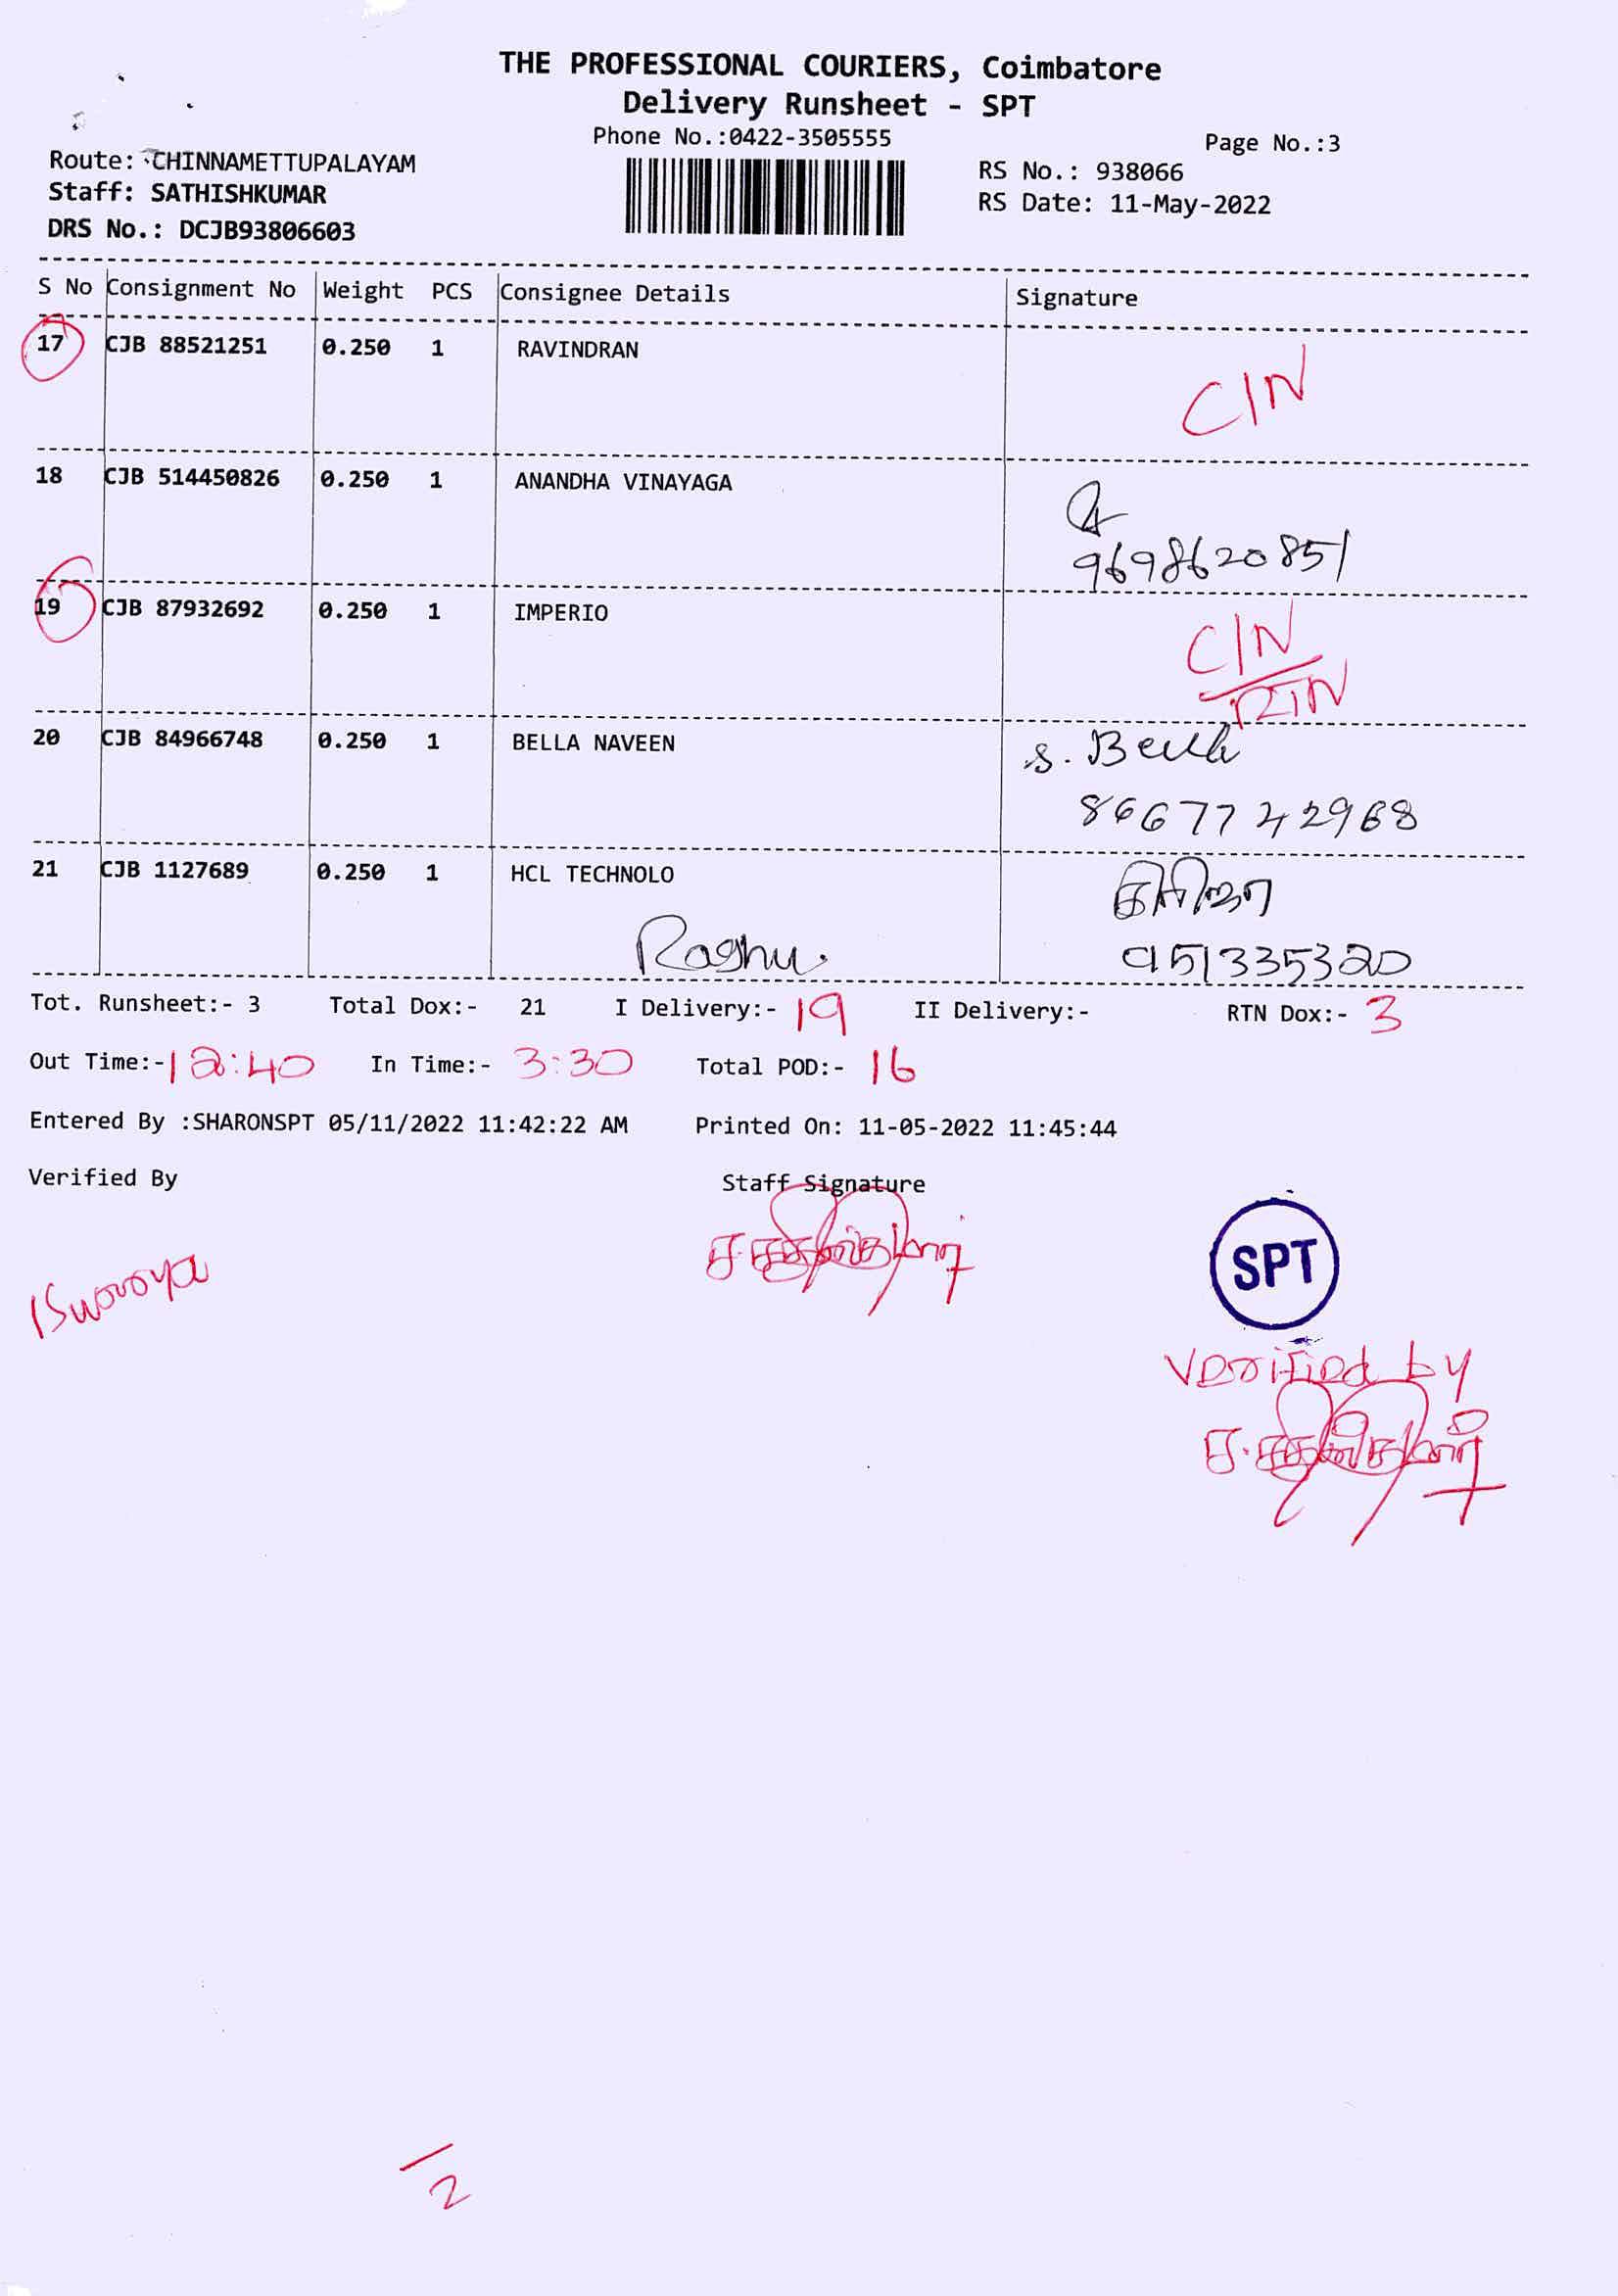 THE PROFESSIONAL COURIERS, Coimbatore
Delivery Runsheet - SPT
Phone No.:0422-3505555
Page No.:3
Route: CHINNAMETTUPALAYAM
RS No.: 938066
Staff: SATHISHKUMAR
RS Date: 11-May-2022
DRS No.: DCJB93806603
S No Consignment No Weight PCS Consignee Details Signature
17 CJB 88521251 0.250 1 RAVINDRAN
CIN
18 CJB 514450826 0.250 1 ANANDHA VINAYAGA
9698620851
19 CJB 87932692 0.250 1 IMPERIO
CIN
RTN
20 CJB 84966748 0.250 1 BELLA NAVEEN
S. Bella
8667742968
21 CJB 1127689 0.250 1 HCL TECHNOLO
Raghu
951335320
Tot. Runsheet:- 3 Total Dox:- 21 I Delivery:- 19 II Delivery:- RTN Dox:- 3
Out Time:- 12:40 In Time:- 3:30 Total POD:- 16
Entered By :SHARONSPT 05/11/2022 11:42:22 AM Printed On: 11-05-2022 11:45:44
Verified By Staff Signature
ச.சதீஸ்குமார்
SPT
Verified by
ச.சதீஸ்குமார்
2